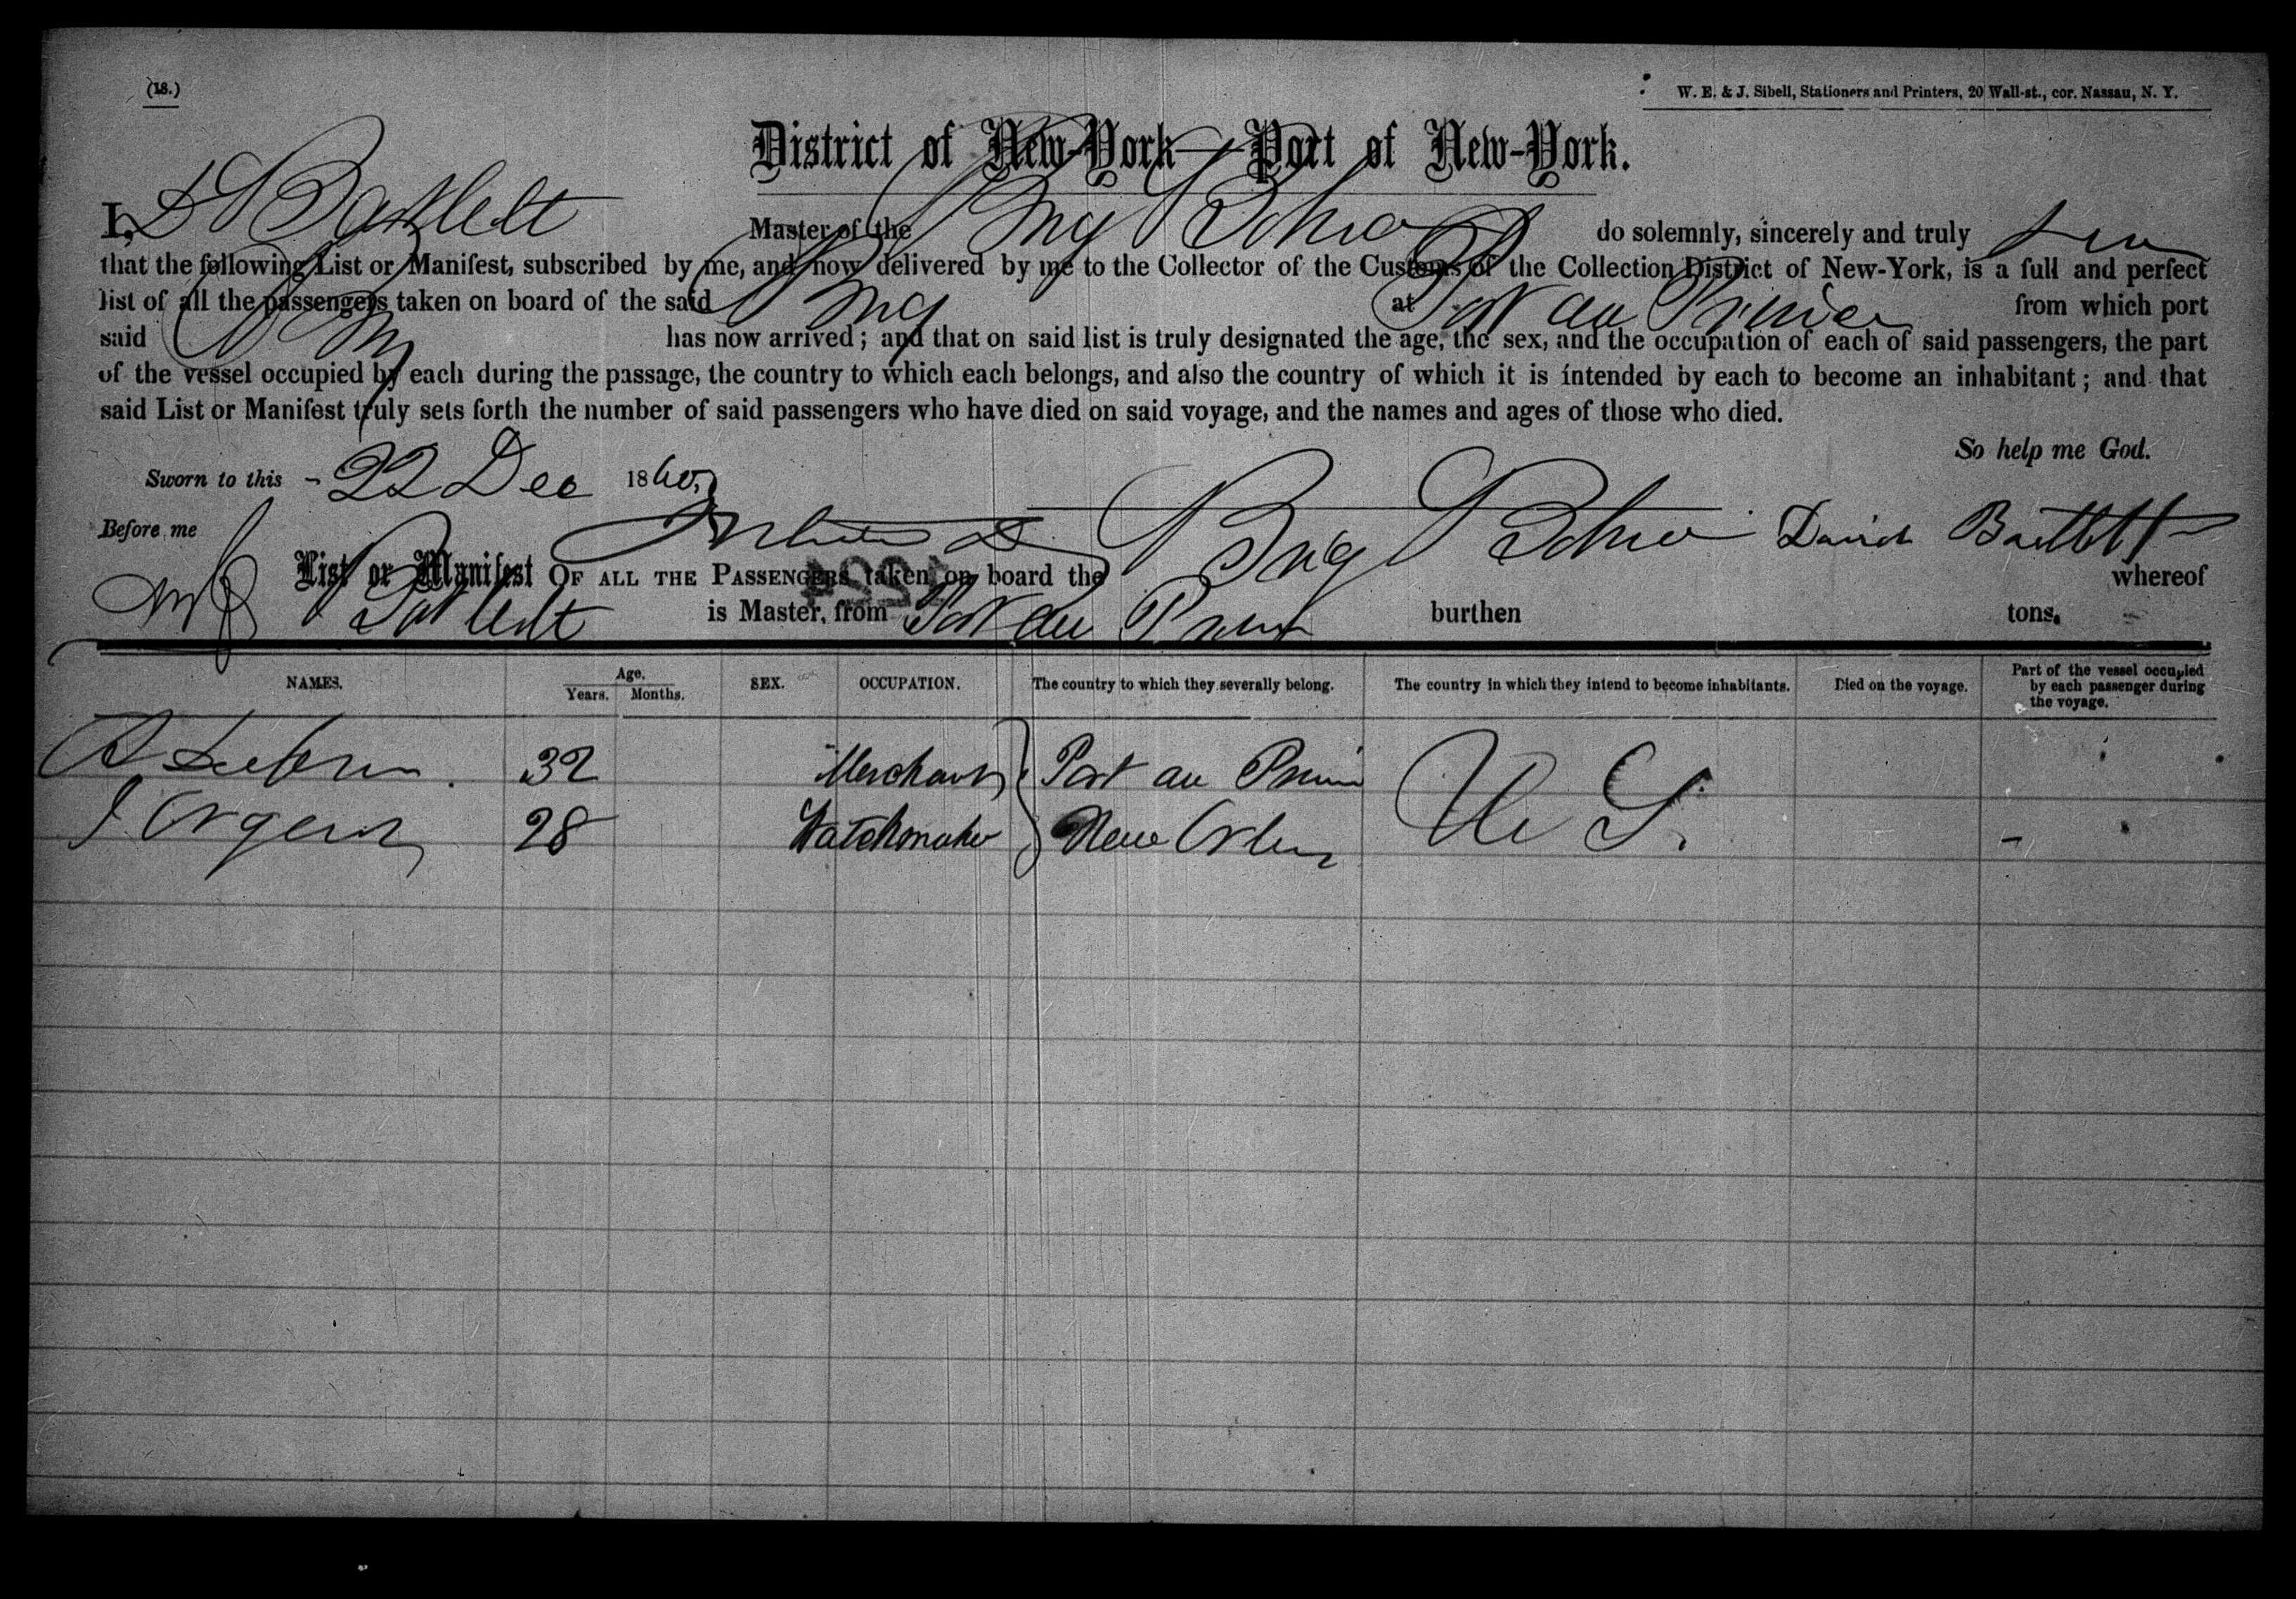 (18.)
W. E. & J. Sibell, Stationers and Printers, 20 Wall-st., cor. Nassau, N. Y.
District of New-York—Port of New-York.
I, D Bartlett Master of the Brig Echo do solemnly, sincerely and truly
that the following List or Manifest, subscribed by me, and now delivered by me to the Collector of the Customs of the Collection District of New-York, is a full and perfect
list of all the passengers taken on board of the said Brig at Port au Prince from which port
said Brig has now arrived; and that on said list is truly designated the age, the sex, and the occupation of each of said passengers, the part
of the vessel occupied by each during the passage, the country to which each belongs, and also the country of which it is intended by each to become an inhabitant; and that
said List or Manifest truly sets forth the number of said passengers who have died on said voyage, and the names and ages of those who died.
So help me God.
Sworn to this 22 Dec 1860,
Before me David Bartlett
List or Manifest OF ALL THE PASSENGERS taken on board the Brig Echo whereof
Bartlett is Master, from Port au Prince burthen tons.
NAMES. Age. Years. Months. SEX. OCCUPATION. The country to which they severally belong. The country in which they intend to become inhabitants. Died on the voyage. Part of the vessel occupied by each passenger during the voyage.
32 Merchant Port au Prince U S.
28 Watchmaker New Orleans